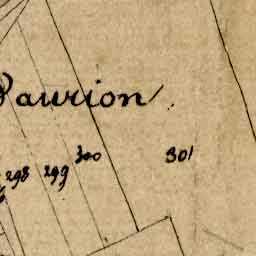 Pavrion
298 299 300 301